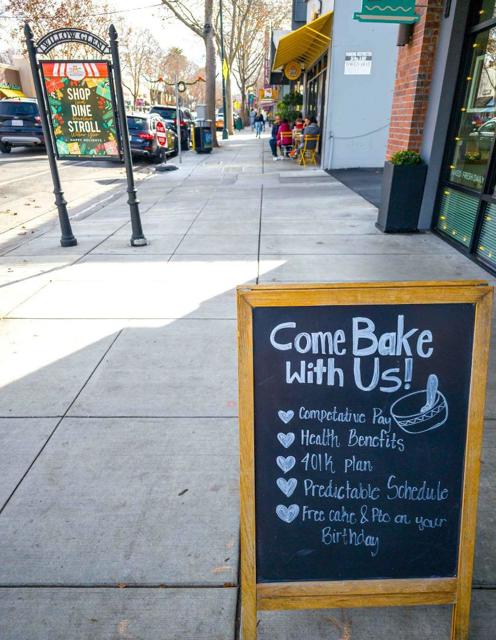 WILLOW GLEN
SHOP
DINE
STROLL
HAPPY HOLIDAYS
Come Bake
With Us!
Competative Pay
Health Benefits
401K plan
Predictable Schedule
Free cake & Pto on your
Birthday